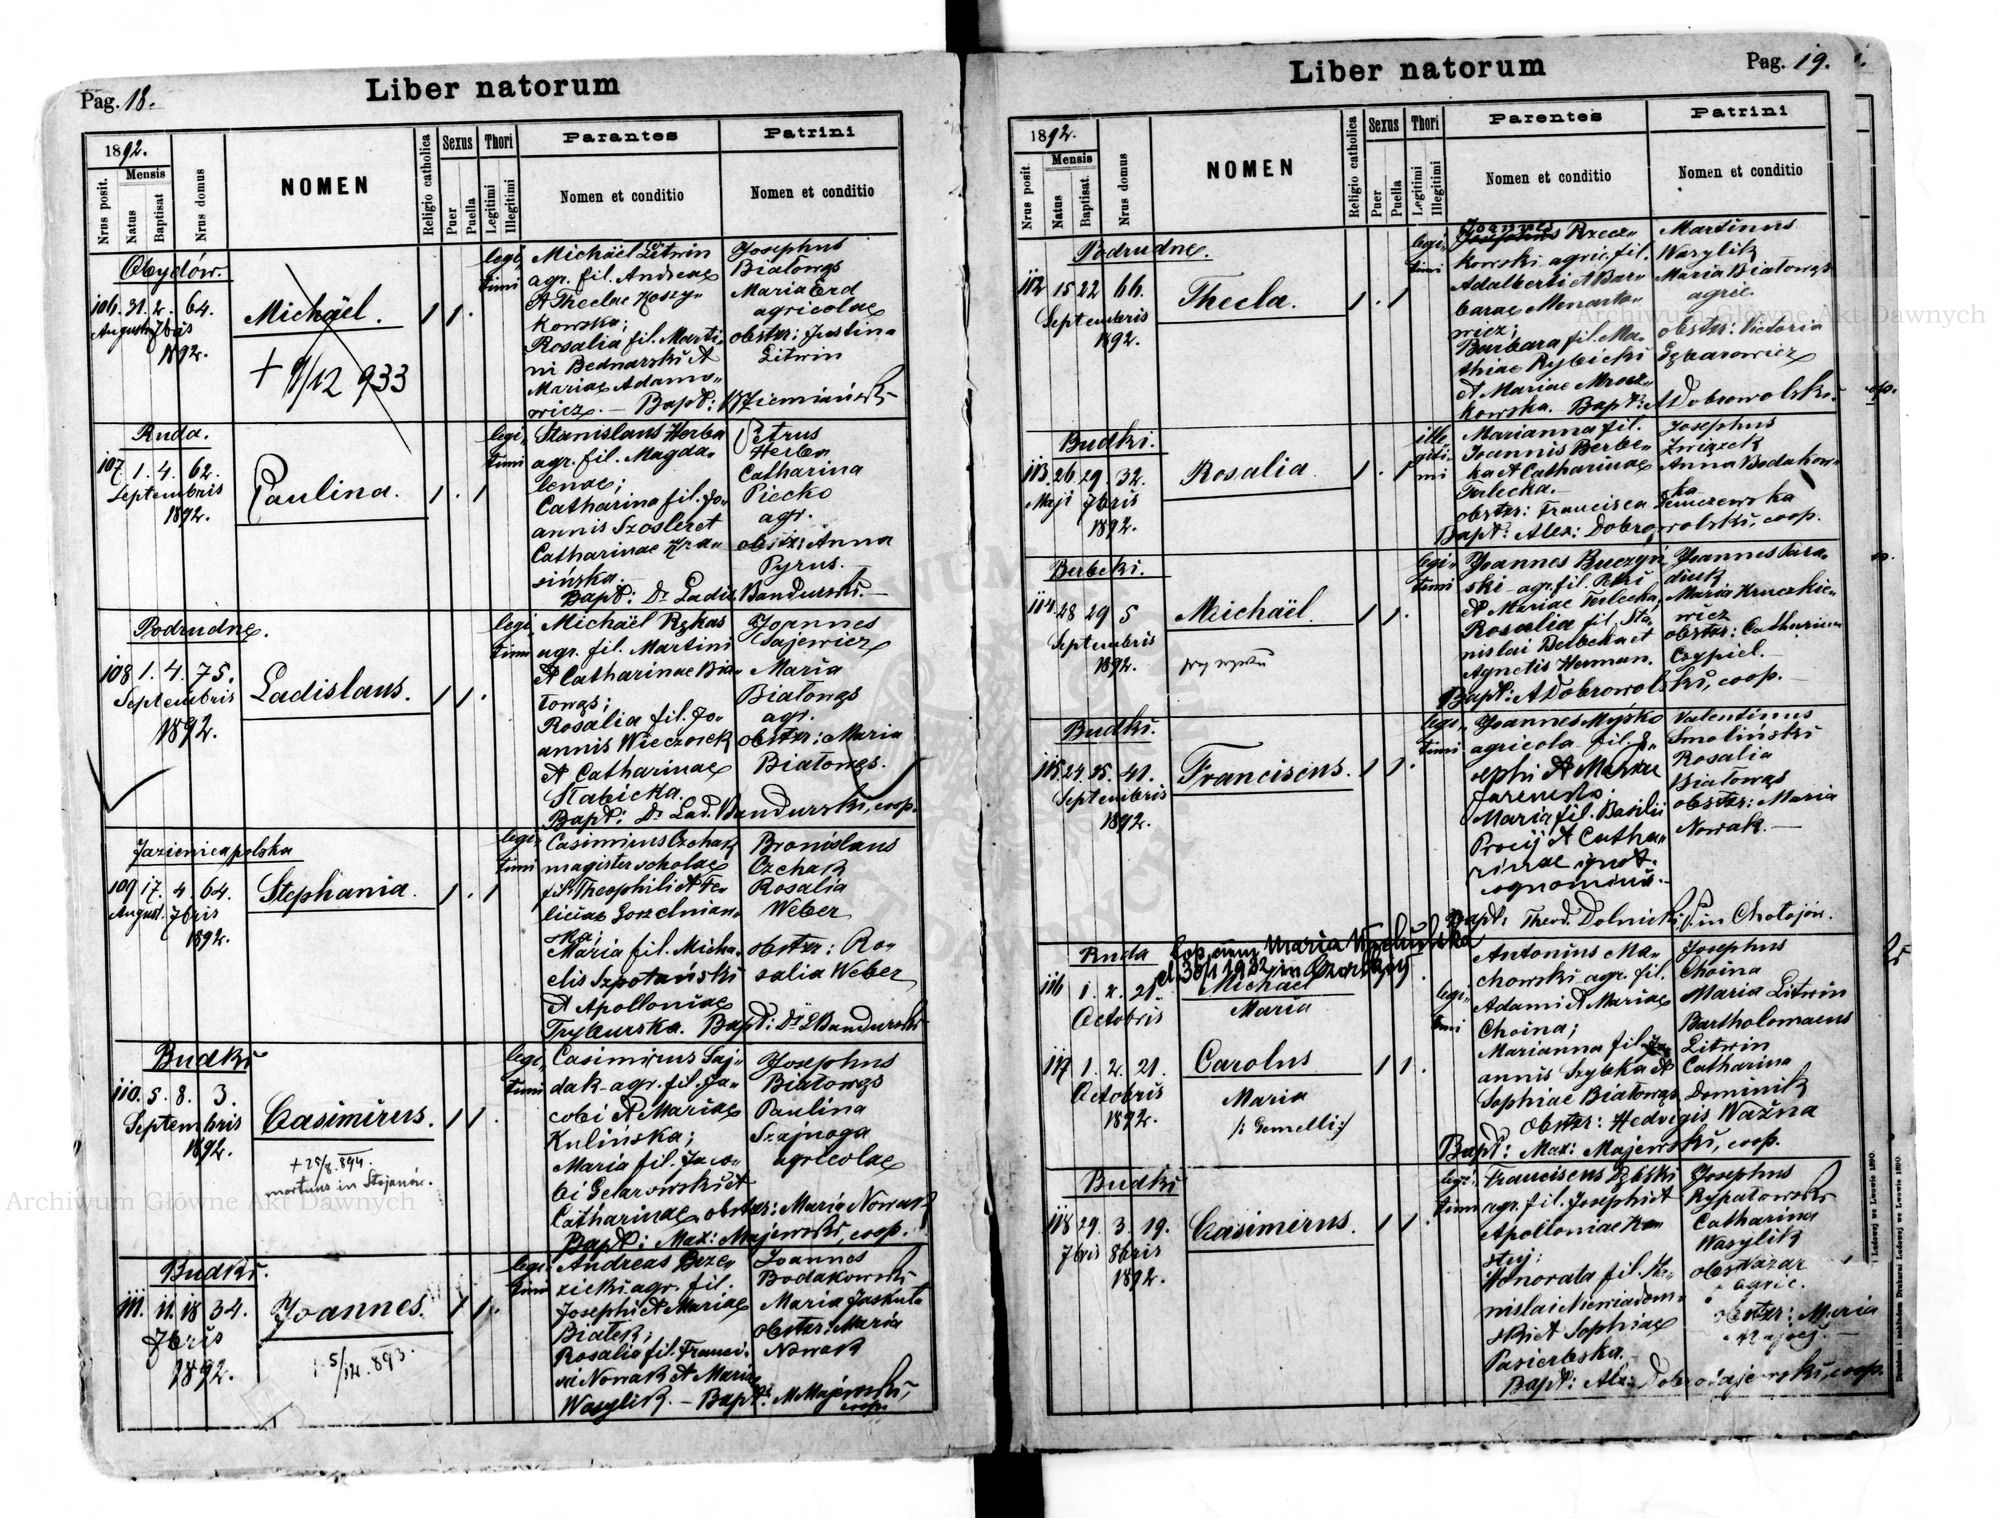 Pag. 18.
Liber natorum
1892.
Mensis
Nrus posit.
Natus
Baptisat
Nrus domus
NOMEN
Religio catholica
Sexus
Puer
Puella
Thori
Legitimi
Illegitimi
Parantes
Nomen et conditio
Patrini
Nomen et conditio
Obydów.
106. 31. 2. 64.
Augusti 7bris
1892.
Michäel.
+ 9/12 933
1 1 .
legi
timi
Michäel Litwin
agr. fil. Andreae
A Theclae Koszy-
kowska;
Rosalia fil. Marti-
ni Bednarski A
Mariae Adamo-
wicz. — Bapt:
Josephus
Białowąs
Maria Erd
agricolae
obstr: Justina
Litwin
Ruda.
107. 1. 4. 62.
Septembris
1892.
Paulina.
1 . 1
legi-
timi
Stanislaus Herba
agr. fil. Magda-
lenae;
Catharina fil. Jo-
annis Szosler et
Catharinae Kra-
sińska.
Bapt: Dr Ladis. Bandurski. —
Petrus
Herba
Catharina
Piecko
agr.
obstr: Anna
Pyrus.
Podrudne.
108. 1. 4. 75.
Septembris
1892.
Ladislaus.
1 1 .
legi
timi
Michäel Rykas
agr. fil. Martini
A Catharinae Bia-
łowąs;
Rosalia fil. Jo-
annis Wieczorek
A Catharinae
Słabicka.
Bapt: Dr Lad. Bandurski, coop.
Joannes
Sajewicz
Maria
Białowąs
agr.
obstr: Maria
Białowąs.
Jazienica polska
109 17. 4 64.
August. 7bris
1892.
Stephania.
1 . 1
legi-
timi
Casimirus Ozchak
magister scholae
fil. Theophili A Fe-
liciae Gorzelnian-
ska;
Maria fil. Micha-
elis Szpotański
A Apolloniae
Tryburska. Bapt: Dr L Bandurski
Bronislaus
Ozchak
Rosalia
Weber
obstr: Ro-
salia Weber
Budki
110. 5. 8. 3.
Septembris
1892.
Casimirus.
+ 25/8. 894.
mortuus in Stojanów.
1 1 .
legi
timi
Casimirus Saj-
dak agr. fil. Ja-
cobi A Mariae
Kulińska;
Maria fil. Jaco-
bi Gelarowski A
Catharinae obstr: Maria Nowak
Bapt: Max: Majewski, coop.
Josephus
Białowąs
Paulina
Szajnoga
agricolae
Budki.
111. 11. 18 34.
7bris
1892.
Joannes.
5/12. 893.
1 1 .
legi
timi
Andreas Brze-
zicki agr. fil.
Josephi A Mariae
Białek;
Rosalia fil. Franci-
sci Nowak A Maria
Wasylik. — Bapt: M Majewski,
coop.
Joannes
Bodakowski
Maria Jaskuła
obstr: Maria
Nowak
Pag. 19.
Liber natorum
1892.
Mensis
Nrus posit.
Natus
Baptisat.
Nrus domus
NOMEN
Religio catholica
Sexus
Puer
Puella
Thori
Legitimi
Illegitimi
Parentes
Nomen et conditio
Patrini
Nomen et conditio
Podrudne.
112 15 22 66.
Septembris
1892.
Thecla.
1 . 1
legi-
timi
Joannes
Josephus Rzecz-
kowski agric. fil.
Adalberti A Bar-
barae Monasto-
wicz;
Barbara fil. Ma-
thiae Rybicki
A Mariae Mrocz-
kowska. Bapt: A Dobrowolski.
Martinus
Wasylik
Maria Białowąs
agric.
obstr: Victoria
Archiwum Główne Akt Dawnych
Budki.
113. 26. 29. 32.
Maji 7bris
1892.
Rosalia
1 . 1
ille-
giti-
mi
Marianna fil.
Joannis Berbe-
ka A Catharinae
Terlecka.
obstr: Francisca Temczewska
Bapt: Alex: Dobrowolski, coop.
Josephus
Związek
Anna Bodakow-
ska
Berbeki.
114. 28 29 5
Septembris
1892.
Michäel.
1 1 .
legi-
timi
Joannes Buczyń-
ski agr. fil. Petri
A Mariae Terlecka;
Rosalia fil. Sta-
nislai Berbeka et
Agnetis Herman.
Bapt: A Dobrowolski, coop.
Joannes Para-
diuk
Maria Kruczkie-
wicz
obstr: Catharina
Czypiel. —
Budki.
115. 24. 25. 41.
Septembris
1892.
Franciscus.
1 1 .
legi-
timi
Joannes Myśko
agricola fil. Jo-
sephi A Mariae
Jaremko.
Maria fil. Basilii
Procij A Catha-
rinae ignot.
cognominis.
Bapt: Theod. Dolnicki, P. in Chołojów.
Valentinus
Smoliński
Rosalia
Białowąs
obstr: Maria
Nowak. —
Ruda
116 1. 2. 21.
Octobris
Cop. cum Maria
d. 30/1 1932 in
Michael
Maria
117 1. 2. 21.
Octobris
1892.
Carolus
Maria
/: Gemelli :/
1 1 .
legi-
timi
Antonius Ma-
chowski agr. fil.
Adami A Mariae
Choina;
Marianna fil. Jo-
annis Szybka A
Sophiae Białowąs
Obstr: Hedvigis Ważna
Bapt: Max: Majewski, coop.
Josephus
Choina
Maria Litwin
Bartholomaeus
Litwin
Catharina
Dominik
Budki
118 29. 3. 19.
7bris 8bris
1892.
Casimirus.
1 1 .
legi-
timi
Franciscus Dębski
agr. fil. Josephi A
Apolloniae
Honorata fil. Sta-
nislai Niewiadom-
ski A Sophiae
Pasierbska
Bapt: Alex:
Josephus
Rypałowski
Catharina
Wasylik
agric.
obstr: Maria
Archiwum Główne Akt Dawnych